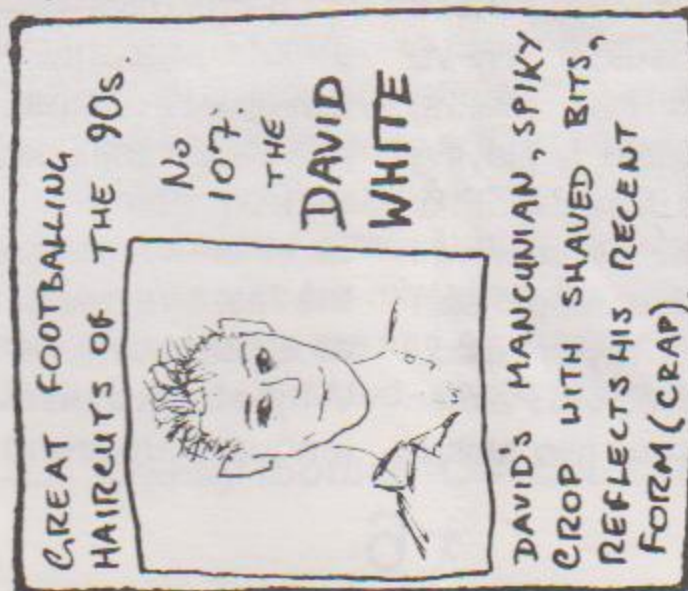 GREAT FOOTBALLING
HAIRCUTS OF THE 90s.
No
107.
THE
DAVID
WHITE
DAVID'S MANCUNIAN, SPIKY
CROP WITH SHAVED BITS,
REFLECTS HIS RECENT
FORM (CRAP)